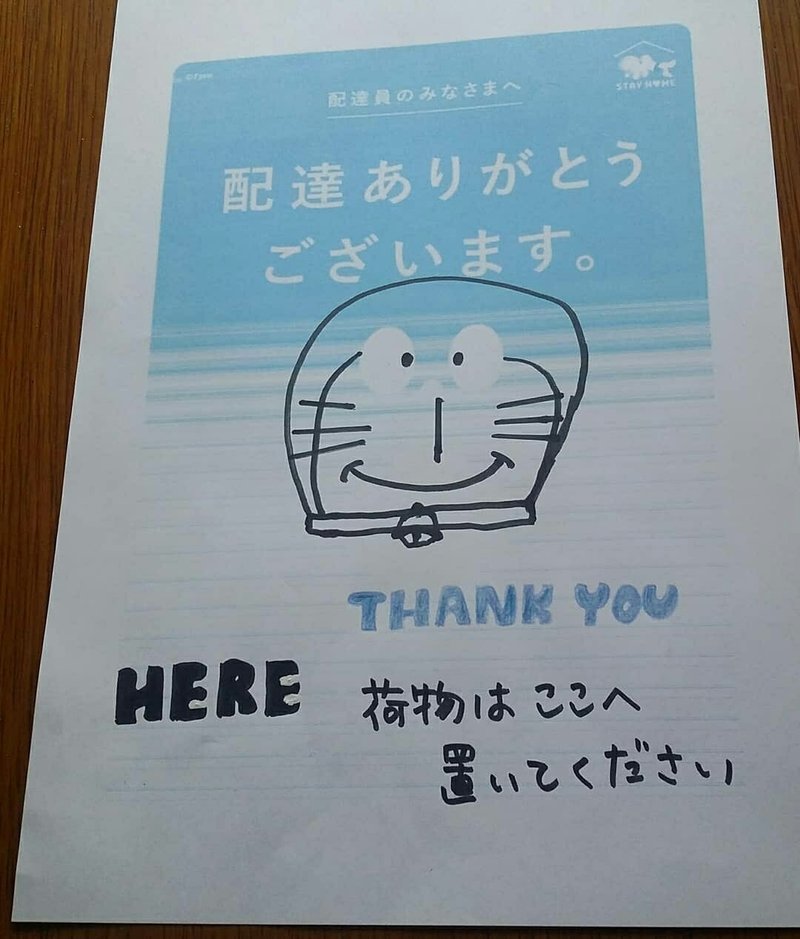 配達員のみなさまへ
STAY HOME
配達ありがとう
ございます。
THANK YOU
HERE
荷物はここへ
置いてください